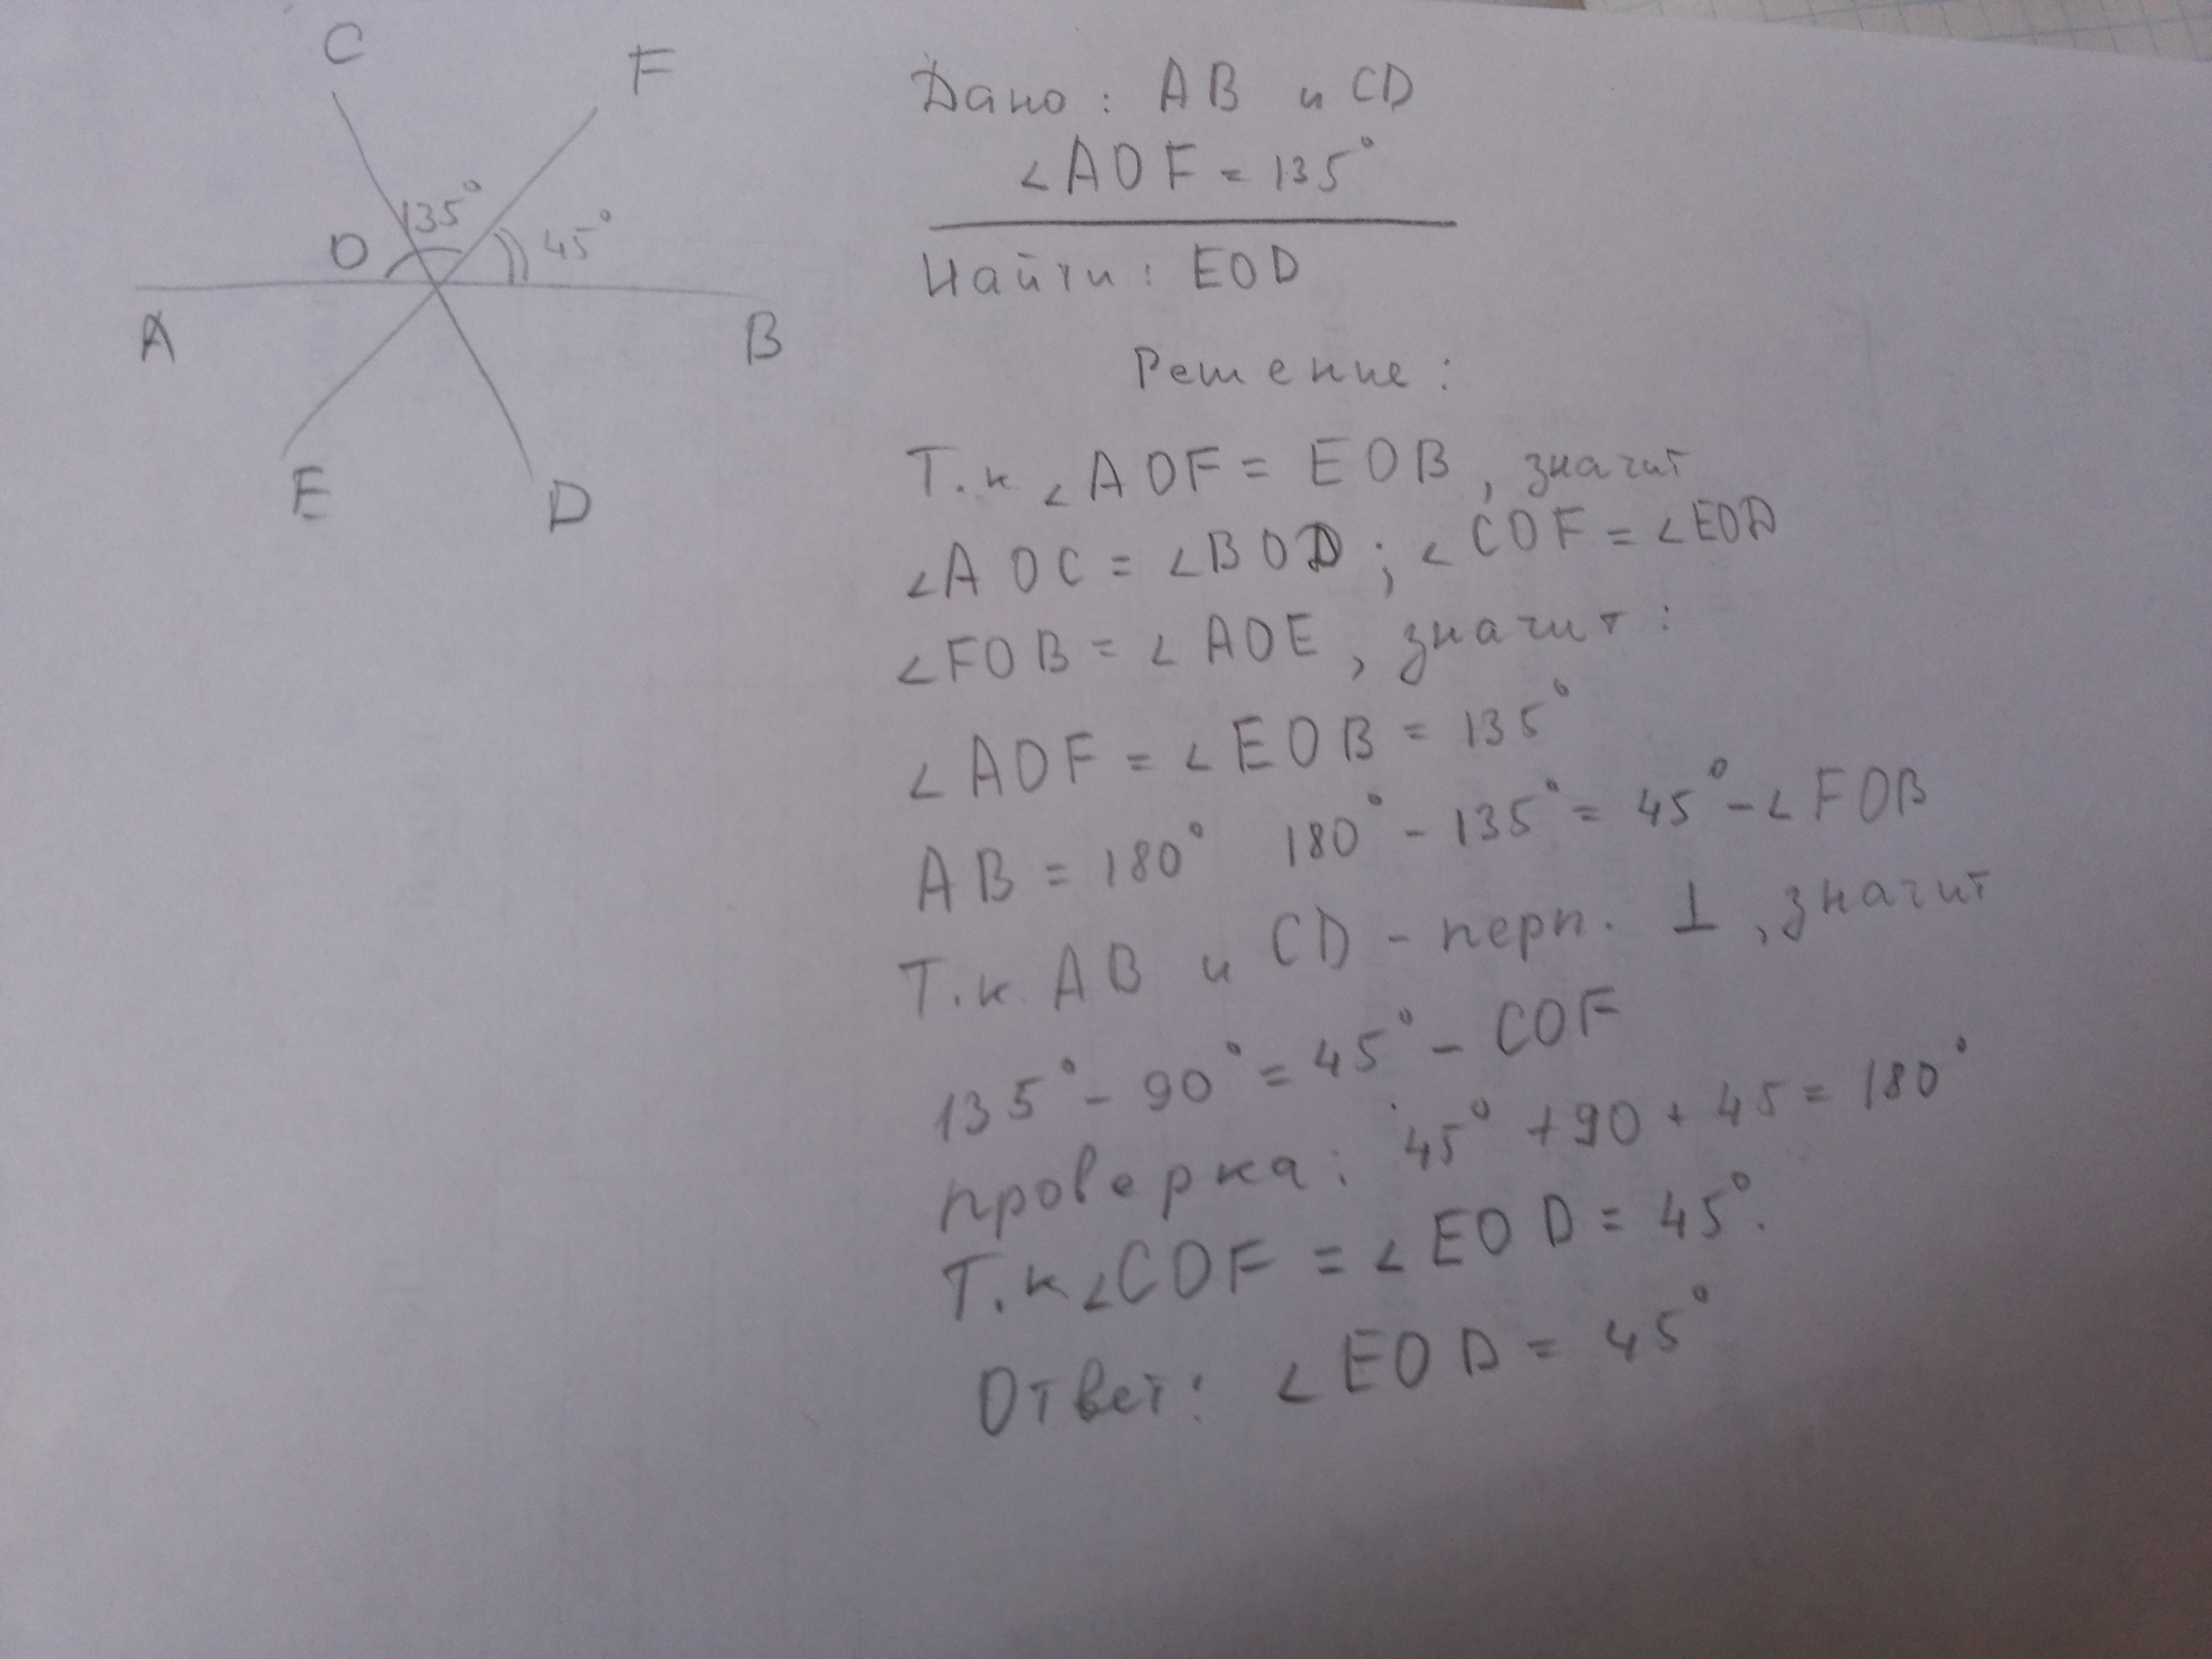 C
F
135°
O
45°
A
B
E
D
Дано: AB и CD
∠AOF = 135°
Найти: EOD
Решение:
Т.к ∠AOF = EOB, значит
∠AOC = ∠BOD; ∠COF = ∠EOD
∠FOB = ∠AOE, значит:
∠AOF = ∠EOB = 135°
AB = 180° 180° - 135° = 45° - ∠FOB
Т.к AB и CD - перп. ⊥, значит
135° - 90° = 45° - COF
проверка: 45° + 90 + 45 = 180°
Т.к ∠COF = ∠EOD = 45°.
Ответ: ∠EOD = 45°